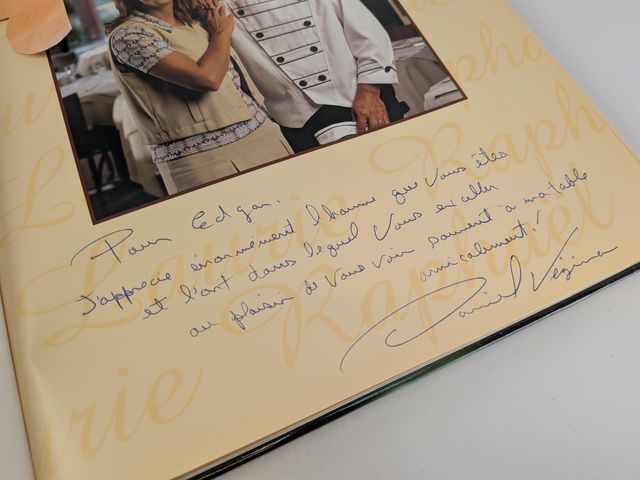 Pour Edgar.
J'apprécie énormément l'homme que vous êtes
et l'art dans lequel vous exceller
au plaisir de vous voir souvent à ma table
amicalement!
Daniel Vézina
Laurie Raphaël
Laurie Raphaël